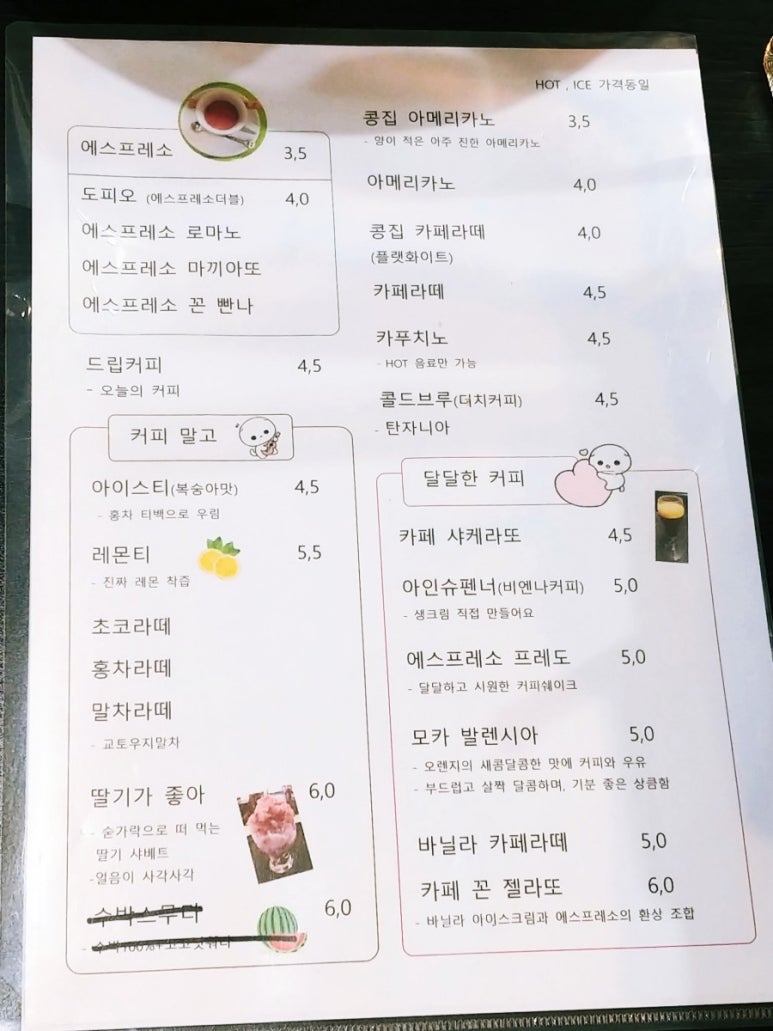 HOT , ICE 가격동일
에스프레소 3,5
도피오 (에스프레소더블) 4,0
에스프레소 로마노
에스프레소 마끼아또
에스프레소 꼰 빤나
드립커피 4,5
- 오늘의 커피
커피 말고
아이스티(복숭아맛) 4,5
- 홍차 티백으로 우림
레몬티 5,5
- 진짜 레몬 착즙
초코라떼
홍차라떼
말차라떼
- 교토우지말차
딸기가 좋아 6,0
- 숟가락으로 떠 먹는
딸기 샤베트
-얼음이 사각사각
수박스무디 6,0
- 수박100%+코코넛워터
콩집 아메리카노 3,5
- 양이 적은 아주 진한 아메리카노
아메리카노 4,0
콩집 카페라떼 4,0
(플랫화이트)
카페라떼 4,5
카푸치노 4,5
- HOT 음료만 가능
콜드브루(더치커피) 4,5
- 탄자니아
달달한 커피
카페 샤케라또 4,5
아인슈펜너(비엔나커피) 5,0
- 생크림 직접 만들어요
에스프레소 프레도 5,0
- 달달하고 시원한 커피쉐이크
모카 발렌시아 5,0
- 오렌지의 새콤달콤한 맛에 커피와 우유
- 부드럽고 살짝 달콤하며, 기분 좋은 상큼함
바닐라 카페라떼 5,0
카페 꼰 젤라또 6,0
- 바닐라 아이스크림과 에스프레소의 환상 조합